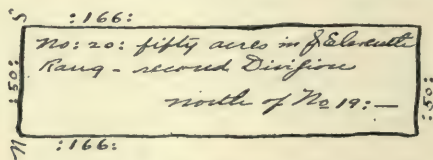 S :166:
No: 20: fifty acres in ye Eleventh
Rang - second Division
north of No 19:—
:50:
:50:
N :166: